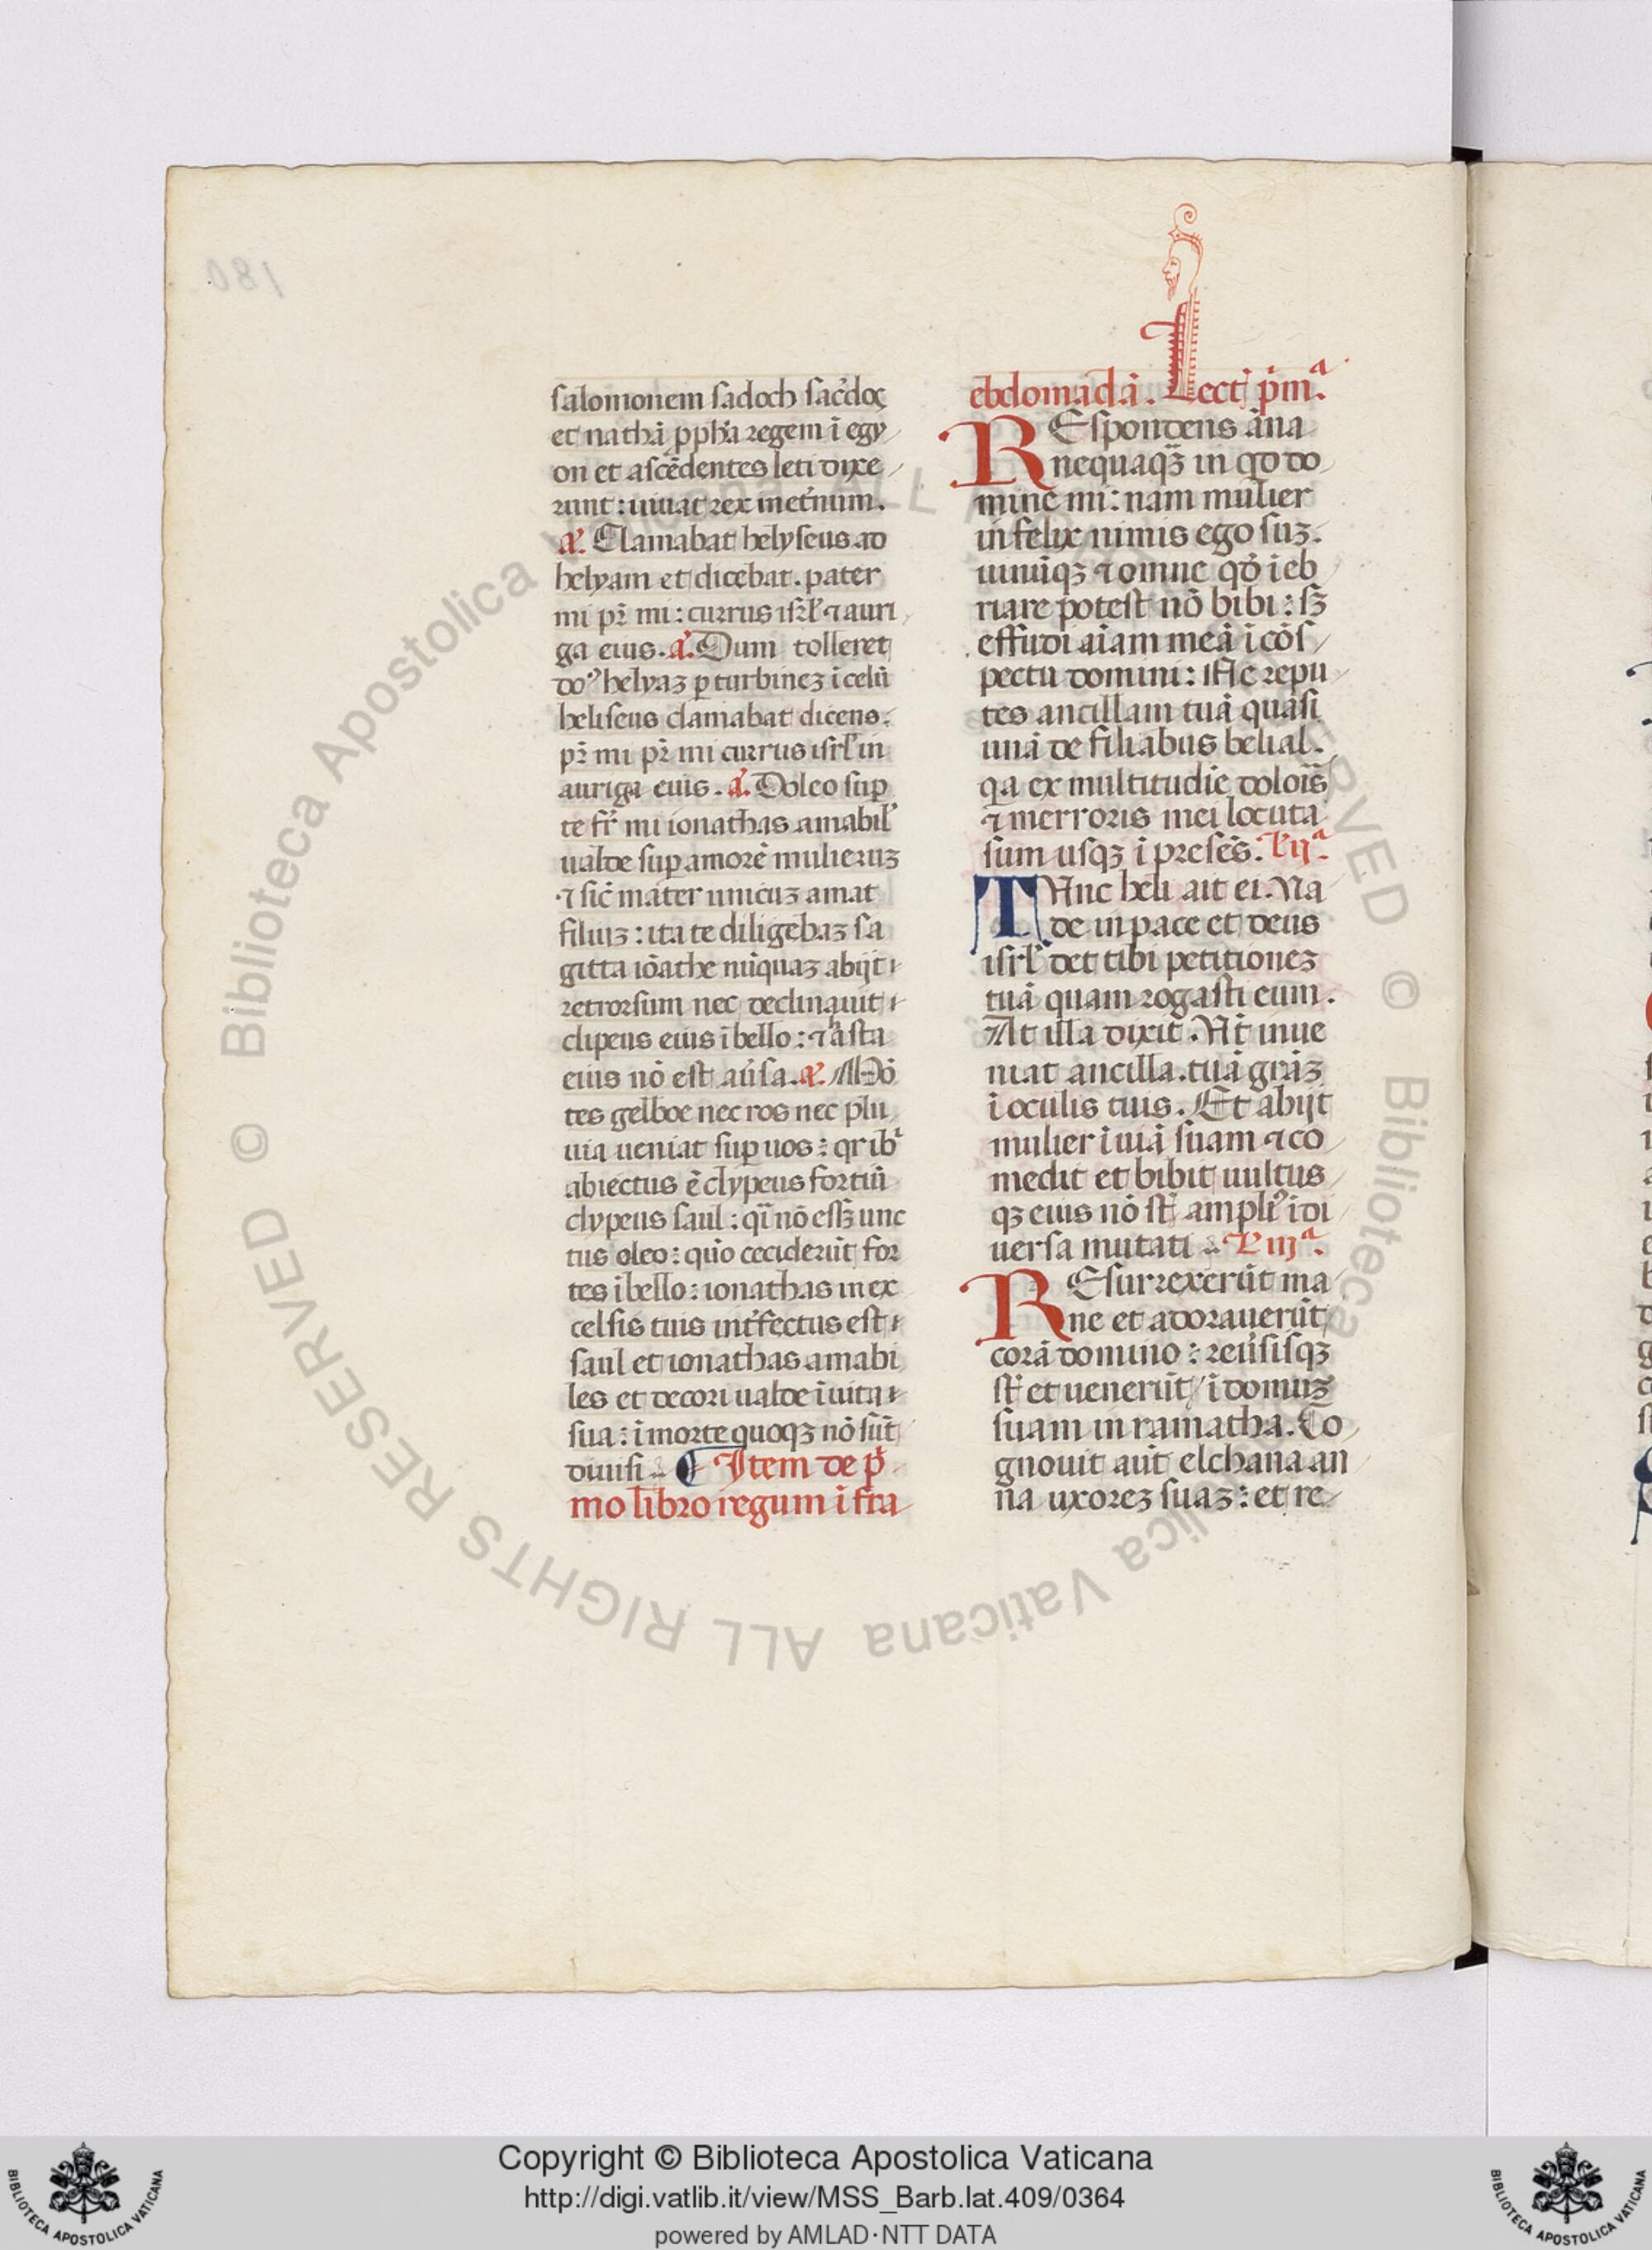 salomonem sadoch sac̾doꝝ
et nathā ꝓpħa regem ī egy
on et ascēdentes leti dixe
runt : uiuat rex inet̾num.
a᷎. Clamabat helyseus ad
helyam et dicebat. pater
mi pr̄ mi : currus isrl̾ ⁊ auri
ga eius. a᷎. Dum tolleret
do⁹ helyaz ꝑ turbinez ī celū
heliseus clamabat dicens.
pr̄ mi pr̄ mi currus isrl̾ in
auriga eius. a᷎. Doleo suꝑ
te fr̄ mi ionathas amabil̾
ualde suꝑ amorē mulieruz
⁊ sic̄ mater unicuz amat
filiuz : ita te diligebaz sa
gitta iōathe nūquaz abijt
retrorsum nec declinauit
clipeus eius ī bello : ⁊ asta
eius nō est au̾sa. a᷎. Mō
tes gelboe nec ros nec plu
uia ueniat suꝑ uos : qr ībͥ
abiectus ē clypeus fortiū
clypeus saul : qͥ nō essꝫ unc
tus oleo : quo ceciderūt for
tes ī bello : ionathas in ex
celsis tuis int̾fectus est
saul et ionathas amabi
les et decori ualde ī uita
sua : ī morte quoqꝫ nō sūt
diuisi. ¶ Item de pͥ
mo libro regum ī fra
ebdomadā. Lectꝭ pͥmᵃ.
REspondens āna
nequaqꝫ in qͥd do
mine mi : nam mulier
infelix nimis ego suꝫ.
uinūqꝫ ⁊ omne qd̾ īeb
riare potest nō bibi : sꝫ
effudi aīam meā ī cōs
pectu domini : Ne repu
tes ancillam tuā quasi
unā de filiabus belial.
qa ex multitudīe doloīs
⁊ merroris mei locuta
sum usqꝫ ī presēs. L' ijᵃ.
TUnc heli ait ei. Ua
de in pace et deus
isrl̾ det tibi petitionez
tuā quam rogasti eum.
At illa dixit. Ut̄ inue
niat ancilla. tuā grāz
ī oculis tuis. Et abijt
mulier ī uiā suam ⁊ co
medit et bibit uultus
qꝫ eius nō st̄ ampli⁹ ī di
uersa mutati. L' iijᵃ.
REsurrexerūt ma
ne et adorauerūt
corā domino : reu̾sisqꝫ
st̄ et uenerūt ī domuz
suam in ramatha. Co
gnouit aūt elchana an
na uxorez suaz : et re
180
Copyright © Biblioteca Apostolica Vaticana
http://digi.vatlib.it/view/MSS_Barb.lat.409/0364
powered by AMLAD·NTT DATA
BIBLIOTECA APOSTOLICA VATICANA
BIBLIOTECA APOSTOLICA VATICANA
© Biblioteca Apostolica Vaticana ALL RIGHTS RESERVED © Biblioteca Apostolica Vaticana ALL RIGHTS RESERVED